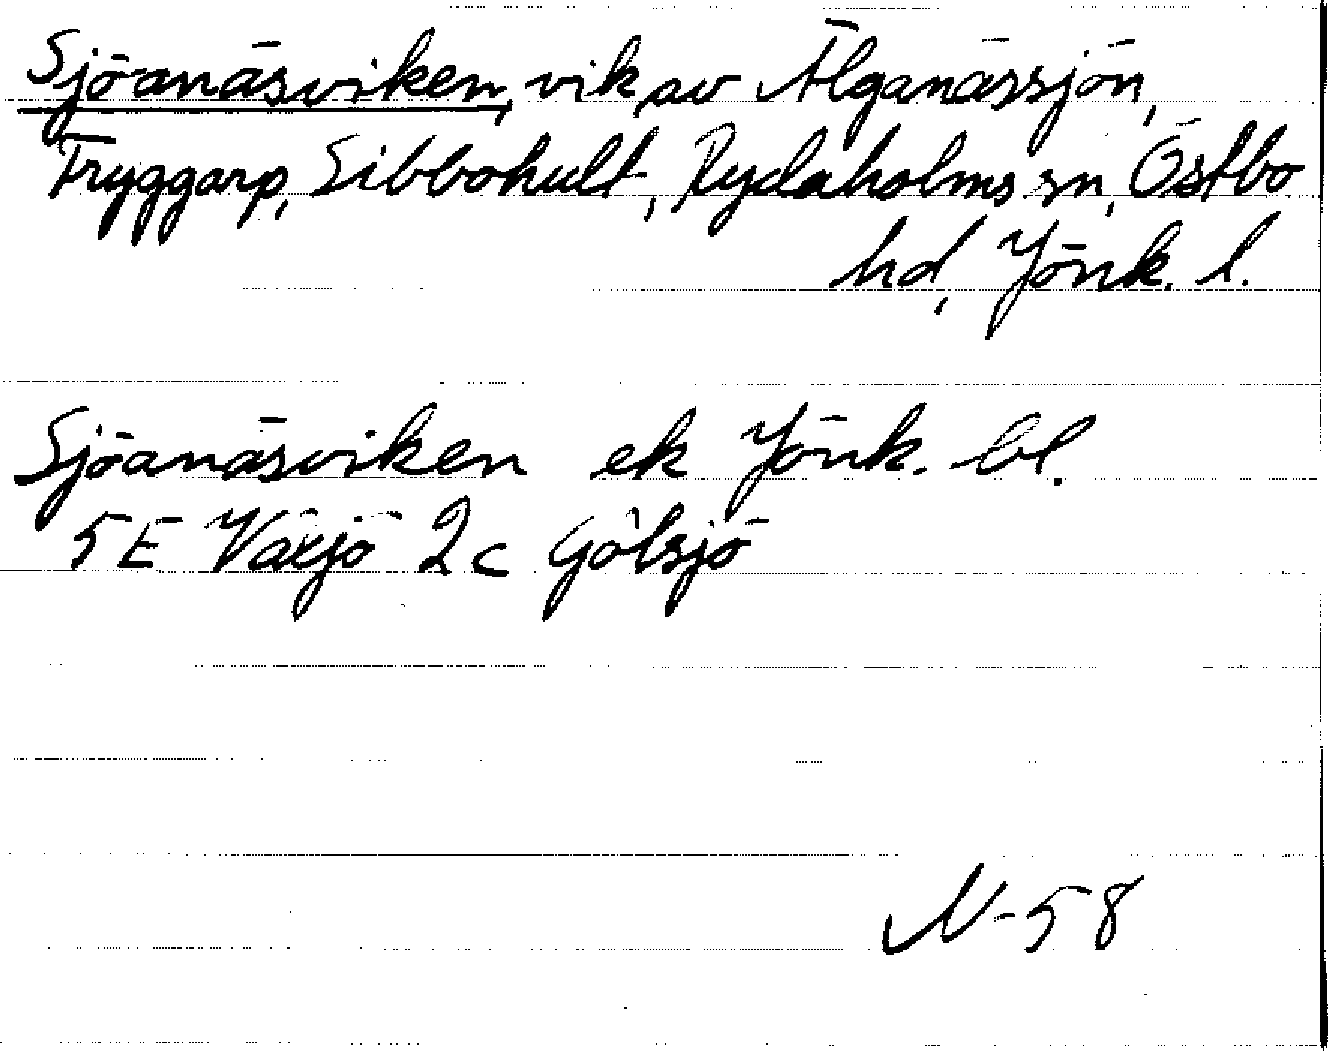 Sjöanäsviken, vik av Älganässjön,
Tryggarp, Sibbohult, Rydaholms sn, Östbo
hd, Jönk. l.
Sjöanäsviken ek Jönk. bl.
5E Växjö 2c Gölsjö
N-58